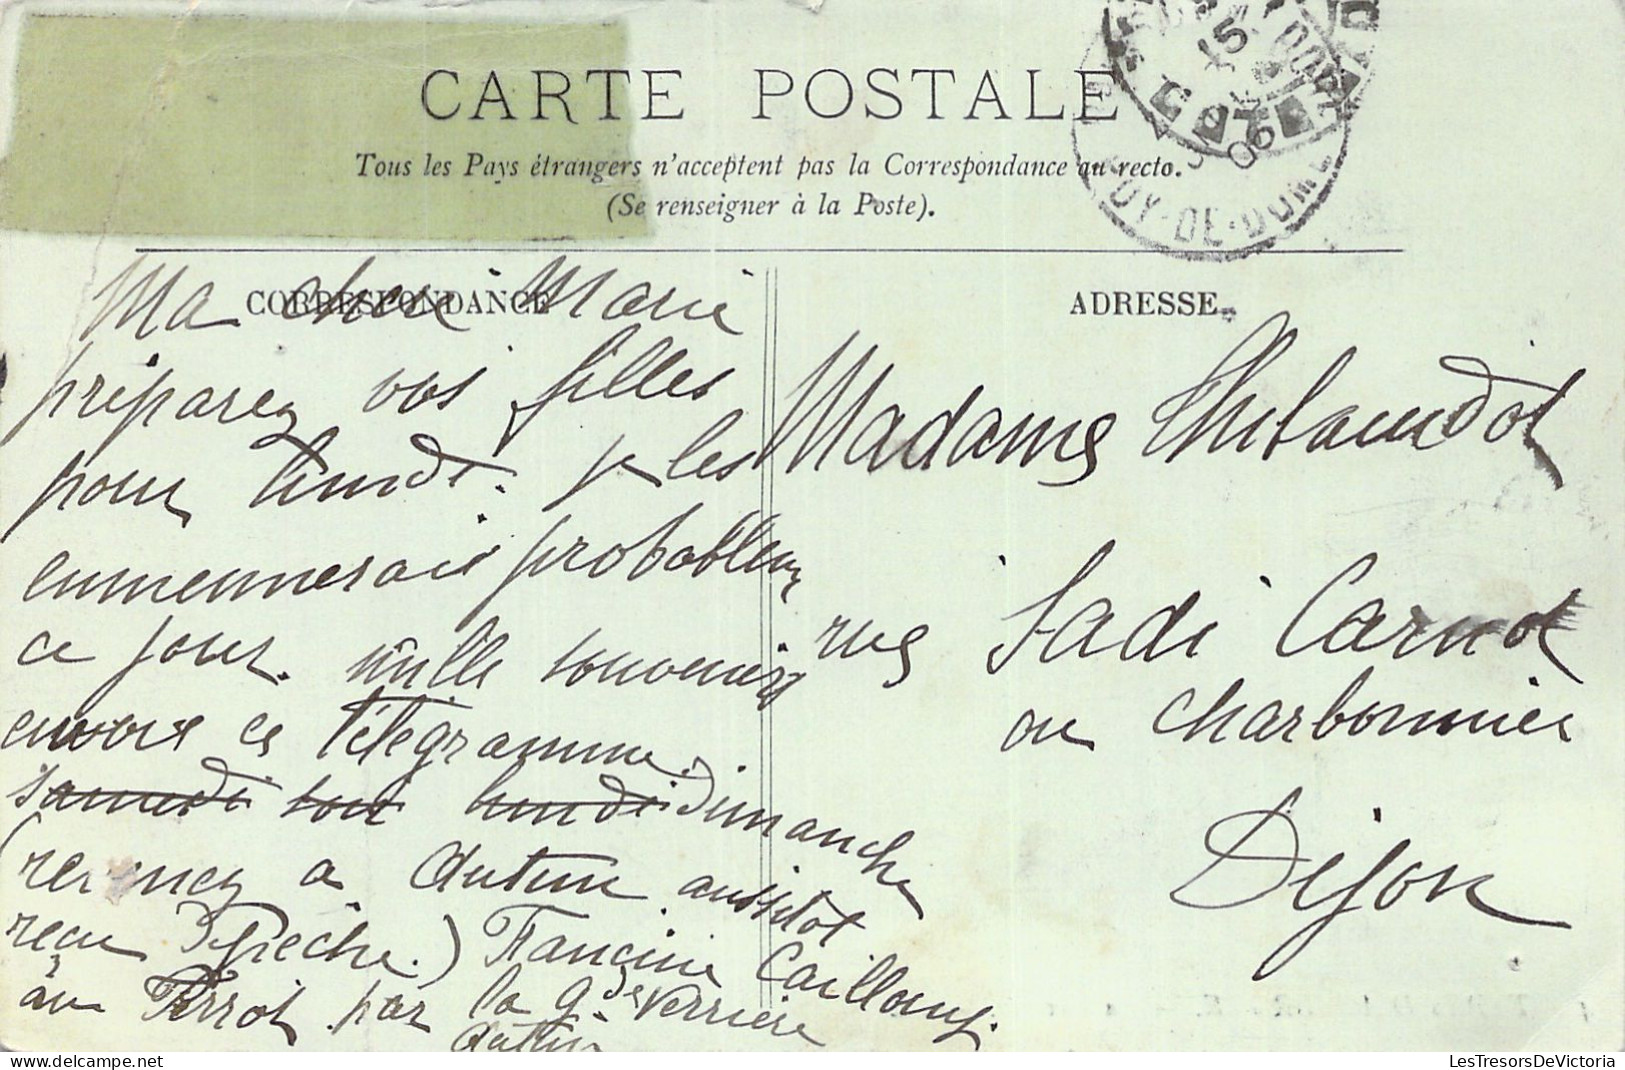 CARTE POSTALE
Tous les Pays étrangers n'acceptent pas la Correspondance au recto.
(Se renseigner à la Poste).
PUY-DE-DOME
15
06
CORRESPONDANCE
Ma chere Marie
préparez vos filles
pour lundi. je les
emmennerais probablem
ce jour. mille souvenirs
envoie ce télégramme.
samedi soit lundi Dimanche
(revenez à Autun aussitot
reçu Dépèche.) Francine Cailloux
au Perrot par la Gde Verrière
Autun
ADRESSE
Madame Thibaudot
rue Sadi Carnot
ou Charbonnier
Dijon
LesTresorsDeVictoria